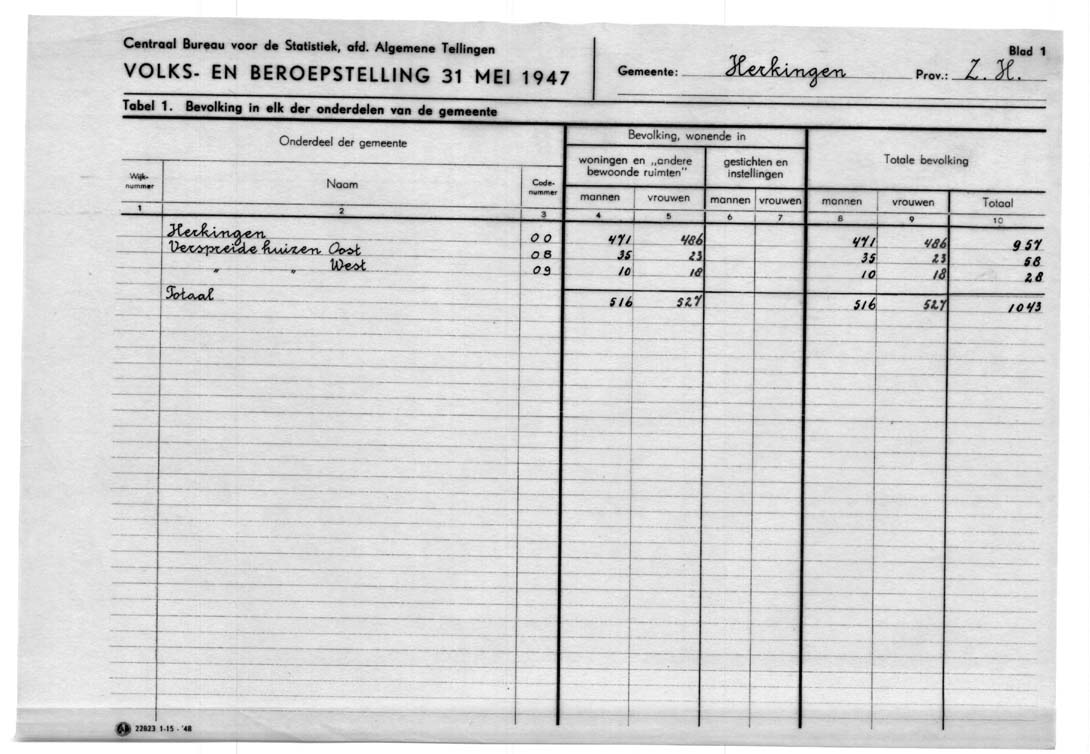 Centraal Bureau voor de Statistiek, afd. Algemene Tellingen
VOLKS- EN BEROEPSTELLING 31 MEI 1947
Gemeente: Herkingen Prov.: Z. H.
Blad 1
Tabel 1. Bevolking in elk der onderdelen van de gemeente
Onderdeel der gemeente
Bevolking, wonende in
Totale bevolking
woningen en „andere bewoonde ruimten"
gestichten en instellingen
Wijk-nummer Naam Code-nummer mannen vrouwen mannen vrouwen mannen vrouwen Totaal
1 2 3 4 5 6 7 8 9 10
Herkingen 00 471 486 471 486 957
Verspreide huizen Oost 08 35 23 35 23 58
„ „ West 09 10 18 10 18 28
Totaal 516 527 516 527 1043
22623 1-15 - '48